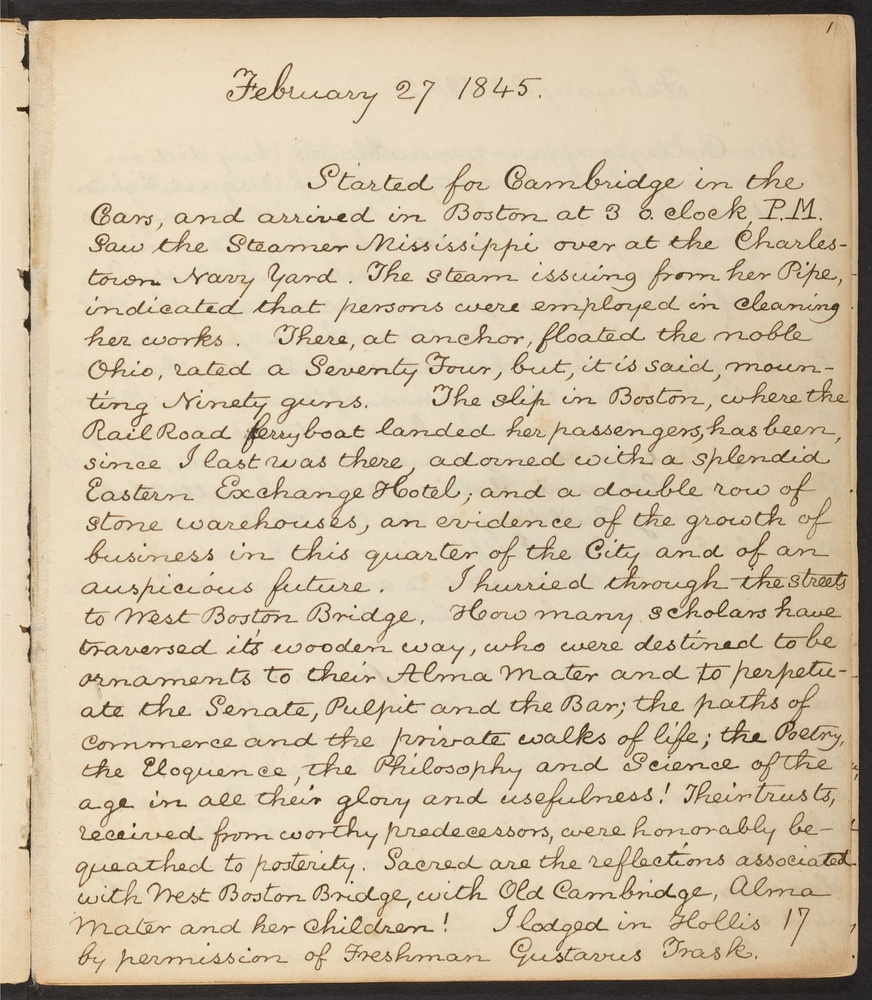 1
February 27 1845.
Started for Cambridge in the
Cars, and arrived in Boston at 3 o.clock, P.M.
Saw the Steamer Mississippi over at the Charles-
town Navy Yard. The steam issuing from her Pipe,
indicated that persons were employed in cleaning
her works. There, at anchor, floated the noble
Ohio, rated a Seventy Four, but, it is said, moun-
ting Ninety guns. The slip in Boston, where the
Rail Road ferryboat landed her passengers, has been,
since I last was there, adorned with a splendid
Eastern Exchange Hotel; and a double row of
stone warehouses, an evidence of the growth of
business in this quarter of the City and of an
auspicious future. I hurried through the streets
to West Boston Bridge. How many scholars have
traversed it's wooden way, who were destined to be
ornaments to their Alma Mater and to perpetu-
ate the Senate, Pulpit and the Bar; the paths of
commerce and the private walks of life; the Poetry,
the Eloquence, the Philosophy and Science of the
age in all their glory and usefulness! Their trusts,
received from worthy predecessors, were honorably be-
queathed to posterity. Sacred are the reflections associated
with West Boston Bridge, with Old Cambridge, Alma
Mater and her children! I lodged in Hollis 17
by permission of Freshman Gustavus Trask.